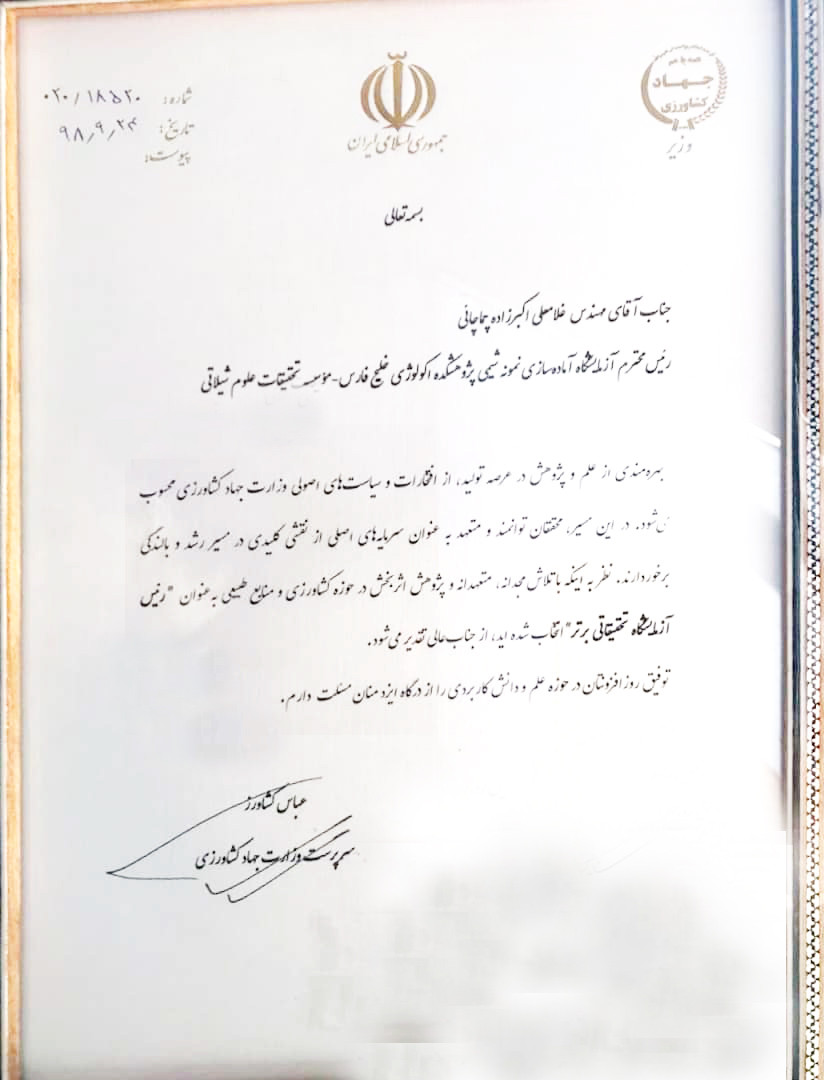 همه با هم
جهاد
کشاورزی
وزیر
جمهوری اسلامی ایران
شماره: ۰۲۰/۱۸۵۲۰
تاریخ: ۹۸٫۹٫۲۴
پیوست:
بسمه تعالی
جناب آقای مهندس غلامعلی اکبرزاده چماچائی
رئیس محترم آزمایشگاه آماده‌سازی نمونه شیمی پژوهشکده اکولوژی خلیج فارس-مؤسسه تحقیقات علوم شیلاتی
بهره‌مندی از علم و پژوهش در عرصه تولید، از افتخارات و سیاست‌های اصولی وزارت جهاد کشاورزی محسوب
می‌شود. در این مسیر، محققان توانمند و متعهد به عنوان سرمایه‌های اصلی از نقشی کلیدی در مسیر رشد و بالندگی
برخوردارند. نظر به اینکه با تلاش مجدانه، متعهدانه و پژوهش اثربخش در حوزه کشاورزی و منابع طبیعی به‌عنوان "رئیس
آزمایشگاه تحقیقاتی برتر" انتخاب شده اید، از جناب‌عالی تقدیر می‌شود.
توفیق روزافزونتان در حوزه علم و دانش کاربردی را از درگاه ایزد منان مسئلت دارم.
عباس کشاورز
سرپرست وزارت جهاد کشاورزی